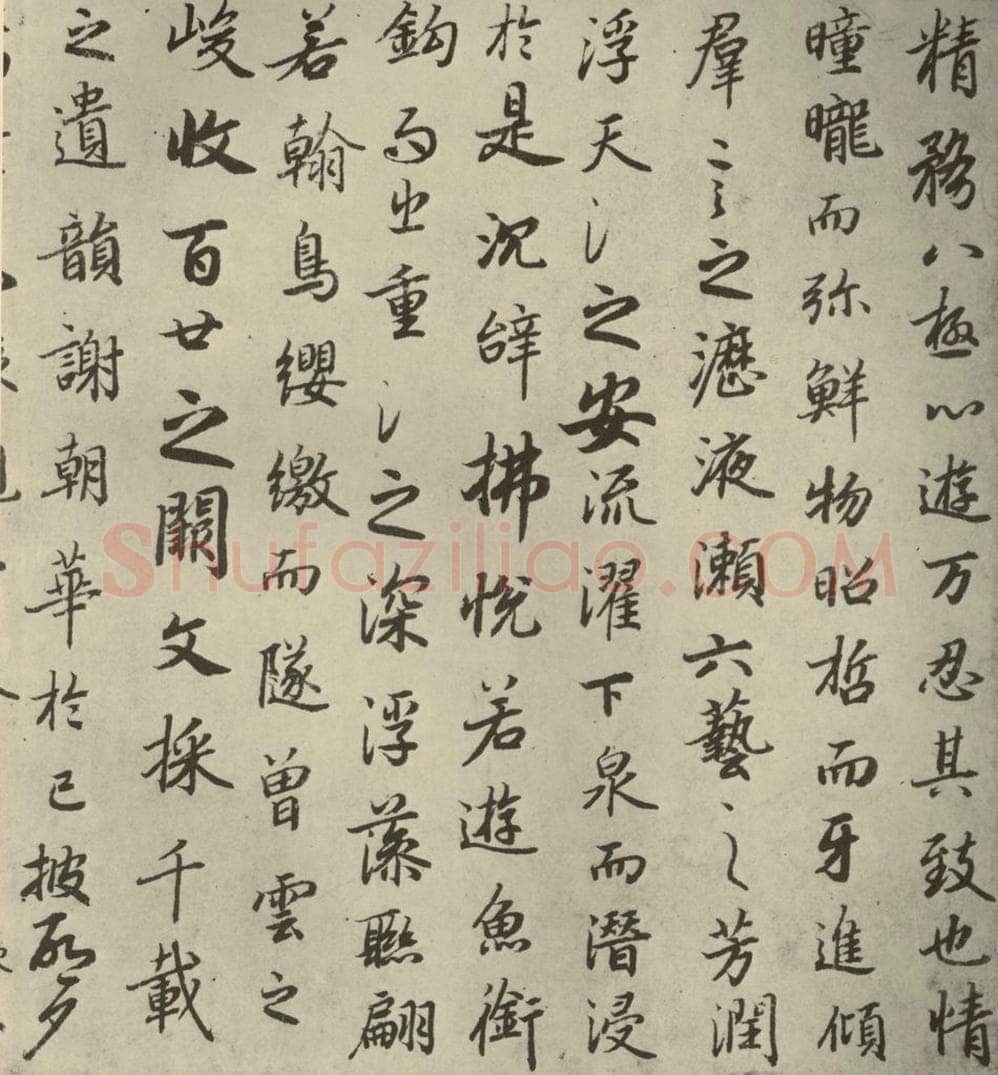 精務八極心遊万忍其致也情
曈曨而弥鮮物昭晢而牙進傾
羣言之瀝液瀨六藝之芳潤
浮天氵之安流濯下泉而潛浸
於是沉辝拂悅若遊魚銜
鈎而出重氵之深浮藻聮翩
若翰鳥纓繳而隧曾雲之
峻收百廿之闕文採千載
之遺韻謝朝華於已披啓夕
Shufaziliao.COM